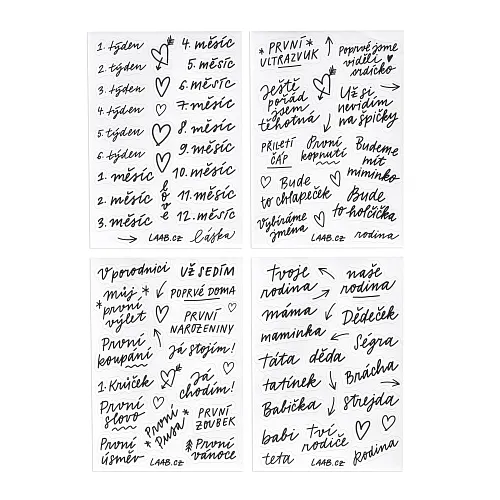 1. týden
2. týden
3. týden
4. týden
5. týden
6. týden
1. měsíc
2. měsíc
3. měsíc
4. měsíc
5. měsíc
6. měsíc
7. měsíc
8. měsíc
9. měsíc
10. měsíc
11. měsíc
12. měsíc
love
LAAB.CZ
láska
PRVNÍ
ULTRAZVUK
Poprvé jsme
viděli
srdíčko
Ještě
pořád
jsem
těhotná
Už si
nevidím
na špičky
PŘILETÍ
ČÁP
První
kopnutí
Budeme
mít
miminko
Bude
to chlapeček
Bude
to holčička
Vybíráme
jména
LAAB.CZ
rodina
V porodnici
UŽ SEDÍM
Můj
první
výlet
POPRVÉ DOMA
PRVNÍ
NAROZENINY
První
koupání
Já stojím!
1. Krůček
Já
chodím!
První
slovo
První
Pusa
PRVNÍ
ZOUBEK
První
úsměv
První
vánoce
LAAB.CZ
Tvoje
rodina
naše
rodina
máma
Dědeček
maminka
Ségra
táta
děda
tatínek
Brácha
Babička
strejda
babi
teta
Tví
rodiče
Rodina
LAAB.CZ